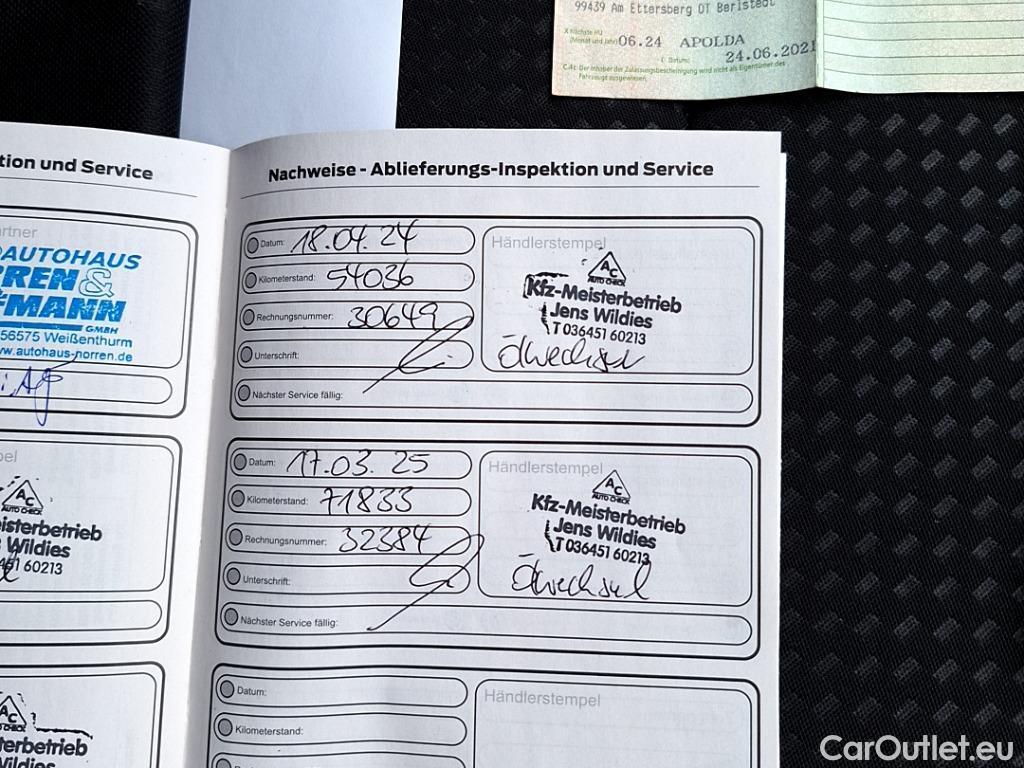 99439 Am Ettersberg OT Berlstedt
X Nächste HU
(Monat und Jahr) 06.24 APOLDA
24.06.2021
C.4c: Der Inhaber der Zulassungsbescheinigung wird nicht als Eigentümer des
Fahrzeugs ausgewiesen.
tion und Service
artner
AUTOHAUS
RREN &
MANN
GMBH
56575 Weißenthurm
www.autohaus-norren.de
pel
AC
AUTO CHECK
eisterbetrieb
Wildies
61 60213
AC
terbetrieb
Wildies
Nachweise - Ablieferungs-Inspektion und Service
Datum: 18.04.24
Kilometerstand: 54036
Rechnungsnummer: 30649
Unterschrift:
Nächster Service fällig:
Händlerstempel
AC
AUTO CHECK
Kfz-Meisterbetrieb
Jens Wildies
T 036451 60213
Ölwechsel
Datum: 17.03.25
Kilometerstand: 71833
Rechnungsnummer: 32384
Unterschrift:
Nächster Service fällig:
Händlerstempel
AC
AUTO CHECK
Kfz-Meisterbetrieb
Jens Wildies
T 036451 60213
Ölwechsel
Datum:
Kilometerstand:
Händlerstempel
CarOutlet.eu